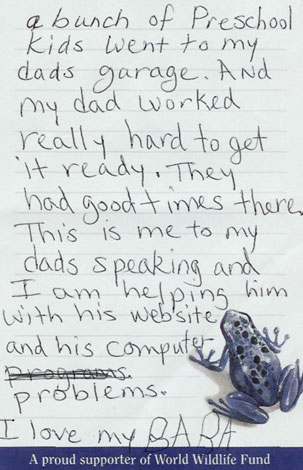 a bunch of Preschool
kids went to my
dads garage. And
my dad worked
really hard to get
it ready. They
had good times there.
This is me to my
dads speaking and
I am helping him
with his website
and his computer
programs.
problems.
I love my BABA
A proud supporter of World Wildlife Fund